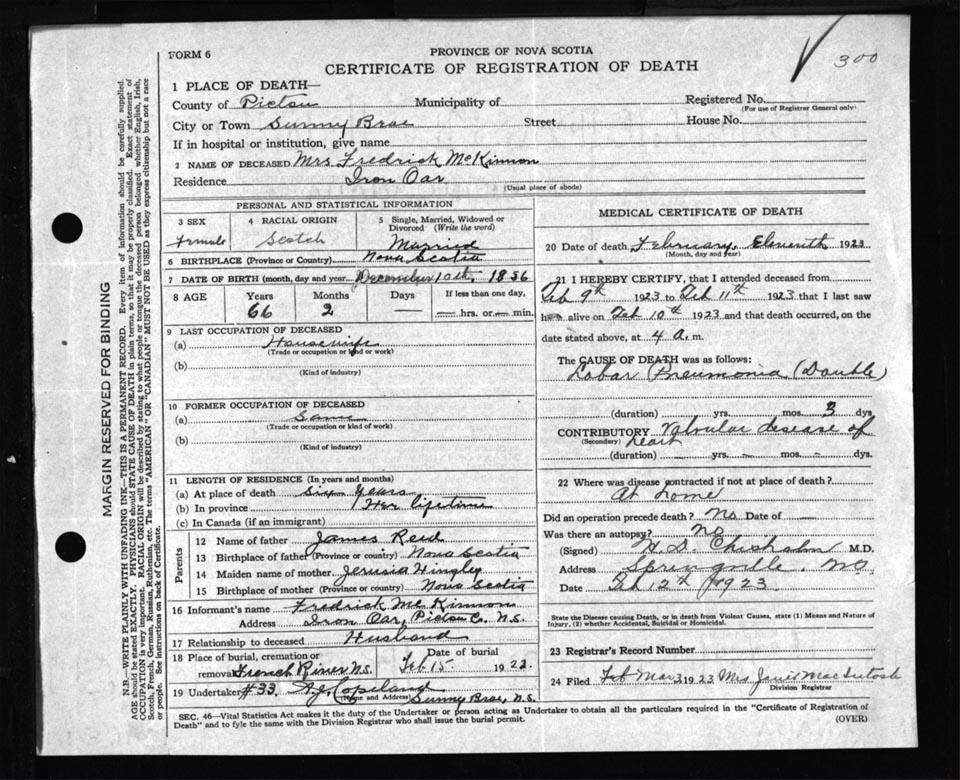 300
FORM 6
PROVINCE OF NOVA SCOTIA
CERTIFICATE OF REGISTRATION OF DEATH
1 PLACE OF DEATH—
County of Pictou Municipality of Registered No.
(For use of Registrar General only)
City or Town Sunny Brae Street House No.
If in hospital or institution, give name
2 NAME OF DECEASED Mrs Fredrick McKinnon
Residence Iron Oar
(Usual place of abode)
PERSONAL AND STATISTICAL INFORMATION
3 SEX
Female
4 RACIAL ORIGIN
Scotch
5 Single, Married, Widowed or Divorced (Write the word)
Married
6 BIRTHPLACE (Province or Country) Nova Scotia
7 DATE OF BIRTH (month, day and year) December 10th, 1856
8 AGE Years Months Days If less than one day,
66 2 — — hrs. or — min.
9 LAST OCCUPATION OF DECEASED
(a) Housewife
(Trade or occupation or kind or work)
(b)
(Kind of industry)
10 FORMER OCCUPATION OF DECEASED
(a) Same
(Trade or occupation or kind of work)
(b)
(Kind of industry)
11 LENGTH OF RESIDENCE (In years and months)
(a) At place of death Six Years
(b) In province Her lifetime
(c) In Canada (if an immigrant)
Parents
12 Name of father James Reid
13 Birthplace of father (Province or country) Nova Scotia
14 Maiden name of mother Jerusia Hingley
15 Birthplace of mother (Province or country) Nova Scotia
16 Informant's name Fredrick McKinnon
Address Iron Oar, Pictou Co. N.S.
17 Relationship to deceased Husband
18 Place of burial, cremation or removal French River N.S. Date of burial Feb 15 1922.
19 Undertaker #33. Copeland
(Name and Address) Sunny Brae, N.S.
MEDICAL CERTIFICATE OF DEATH
20 Date of death February, Eleventh 1923
(Month, day and year)
21 I HEREBY CERTIFY, that I attended deceased from
Feb 9th 1923 to Feb 11th 1923 that I last saw
her alive on Feb 10th 1923 and that death occurred, on the
date stated above, at 4 a. m.
The CAUSE OF DEATH was as follows:
Lobar Pneumonia (Double)
(duration) yrs. mos. 3 dys.
CONTRIBUTORY Valvular disease of
(Secondary) heart
(duration) — yrs. — mos. — dys.
22 Where was disease contracted if not at place of death?
At home
Did an operation precede death? No Date of —
Was there an autopsy? No
(Signed) Chisholm M.D.
Address Springville, N.S.
Date Feb 12th 1923
State the Disease causing Death, or in death from Violent Causes, state (1) Means and Nature of
Injury, (2) whether Accidental, Suicidal or Homicidal.
23 Registrar's Record Number
24 Filed Mar 3 1923 Mrs MacIntosh
Division Registrar
SEC. 46—Vital Statistics Act makes it the duty of the Undertaker or person acting as Undertaker to obtain all the particulars required in the "Certificate of Registration of
Death" and to fyle the same with the Division Registrar who shall issue the burial permit.
(OVER)
MARGIN RESERVED FOR BINDING
N.B.—WRITE PLAINLY WITH UNFADING INK—THIS IS A PERMANENT RECORD. Every item of information should be carefully supplied.
AGE should be stated EXACTLY. PHYSICIANS should STATE CAUSE OF DEATH in plain terms, so that it may be properly classified. Exact statement of
OCCUPATION is very important. RACIAL ORIGIN will be described by stating to what people or tongue the deceased person belonged whether English, Irish,
Scotch, French, German, Russian, Ruthenian, etc. The terms "AMERICAN" OR "CANADIAN" MUST NOT BE USED as they express citizenship but not a race
or people. See instructions on back of Certificate.